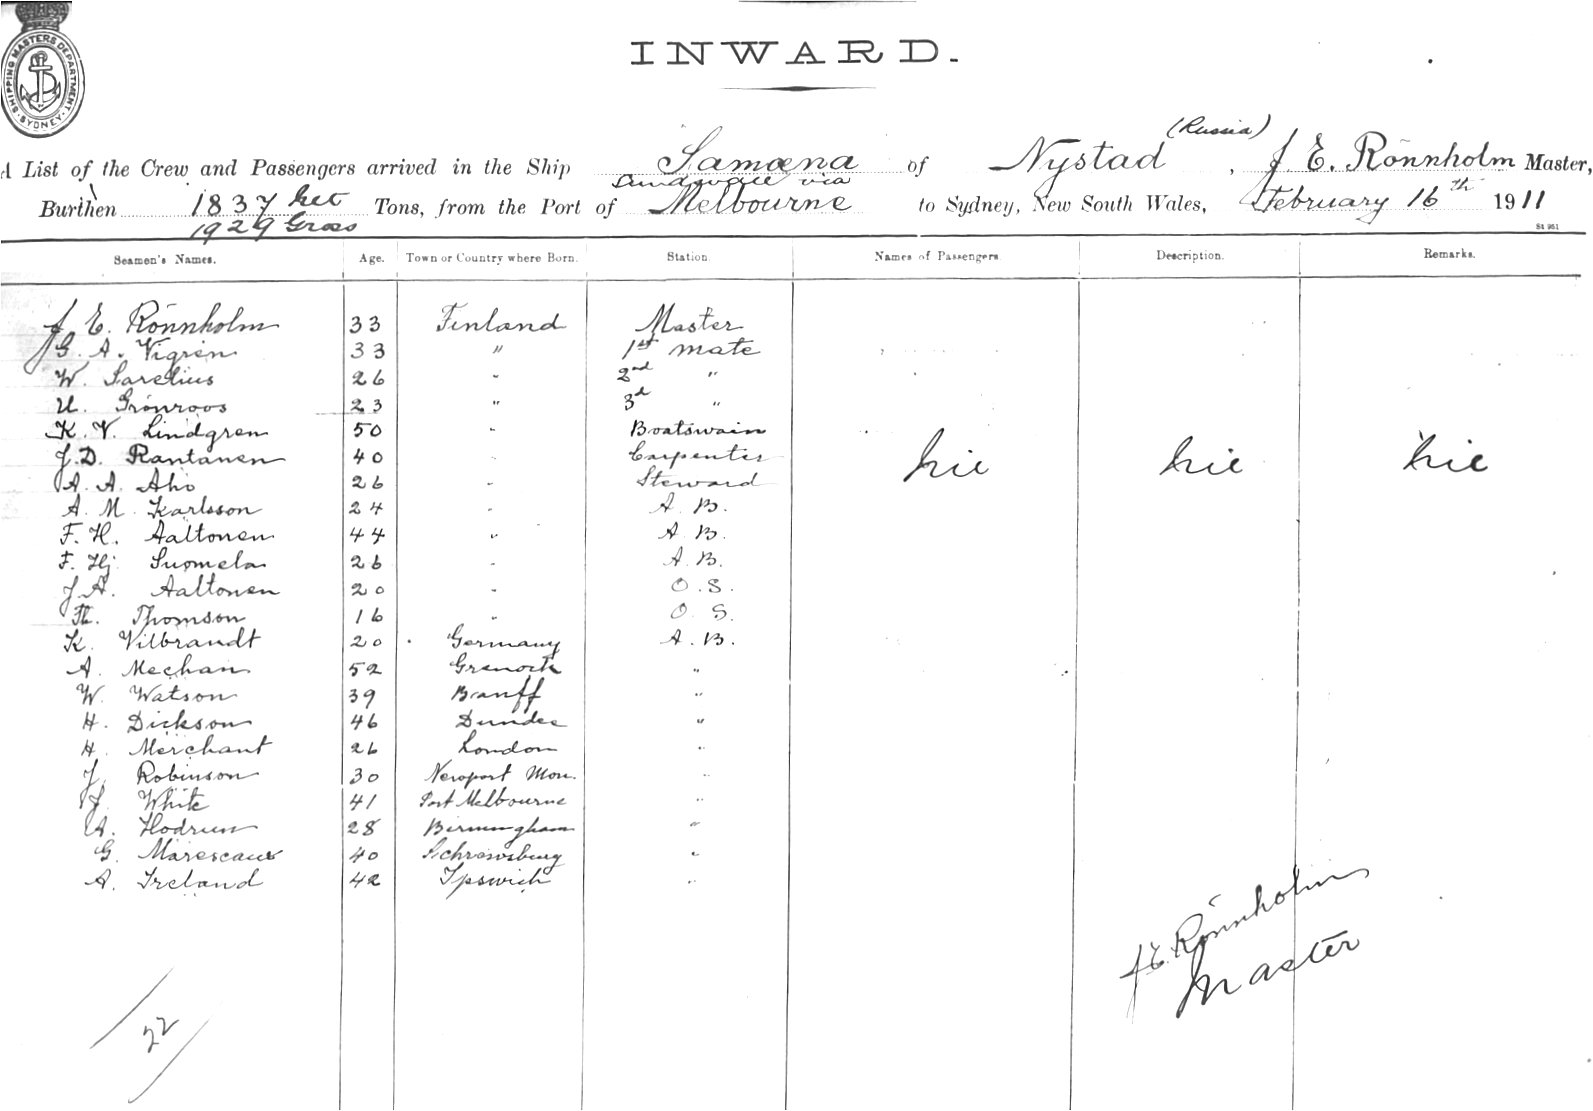 SHIPPING MASTERS DEPARTMENT
SYDNEY
INWARD.
(Russia)
A List of the Crew and Passengers arrived in the Ship Samœna of Nystad, J E. Rönnholm Master,
Sundsvall via
Burthen 1837 Net Tons, from the Port of Melbourne to Sydney, New South Wales, February 16th 1911
1929 Gross
St 951
Seamen's Names. Age. Town or Country where Born. Station. Names of Passengers. Description. Remarks.
J E. Rönnholm 33 Finland Master
G. A. Vigren 33 " 1st mate
W. Sarelius 26 " 2nd "
U. Grönroos 23 " 3rd "
K. V. Lindgren 50 " Boatswain
J. D. Rantanen 40 " Carpenter
A. A. Aho 26 " Steward
Nil Nil Nil
A. M. Karlsson 24 " A. B.
F. H. Aaltonen 44 " A. B.
F. Hj Suomela 26 " A. B.
J. A. Aaltonen 20 " O. S.
Th. Thomson 16 " O. S.
K. Vilbrandt 20 Germany A. B.
A. Mechan 52 Grenock "
W. Watson 39 Banff "
H. Dickson 46 Dundee "
H. Merchant 26 London "
J. Robinson 30 Newport Mon. "
J. White 41 Port Melbourne "
A. Hodrum 28 Birmingham "
G. Marescaux 40 Schrewsburg "
A. Ireland 42 Ipswich "
J E. Rönnholm
Master
22